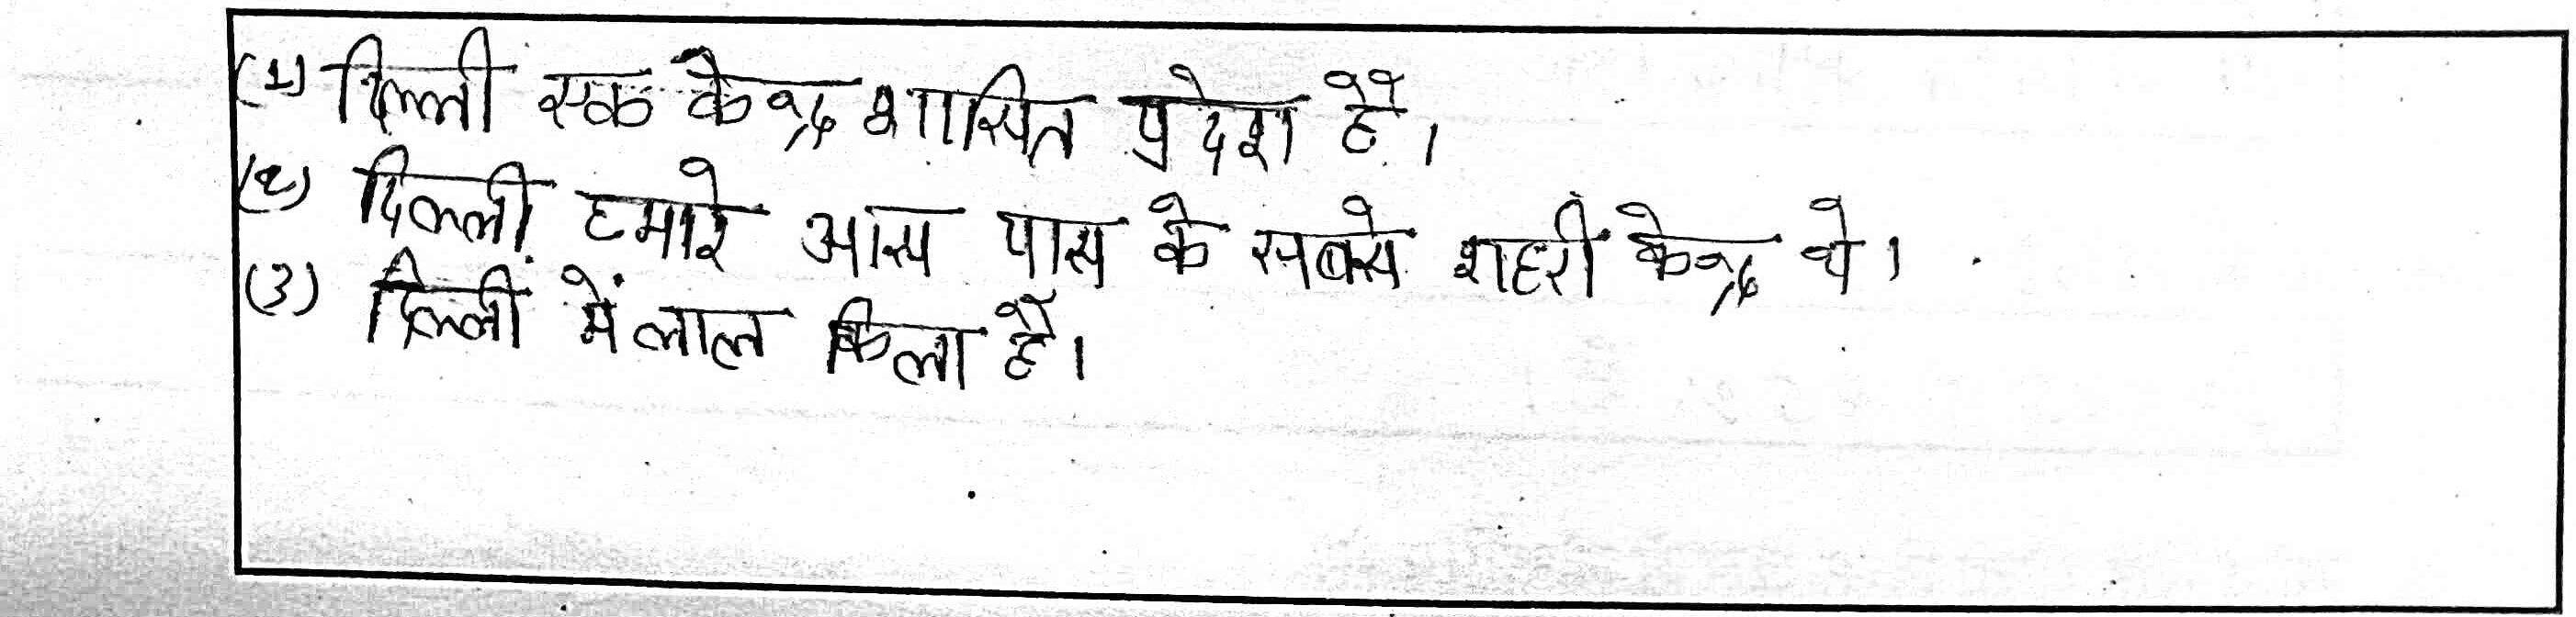 (1) दिल्ली एक केन्द्र शासित प्रदेश है।
(2) दिल्ली हमारे आस पास के सबसे शहरी केन्द्र थे।
(3) दिल्ली में लाल किला है।